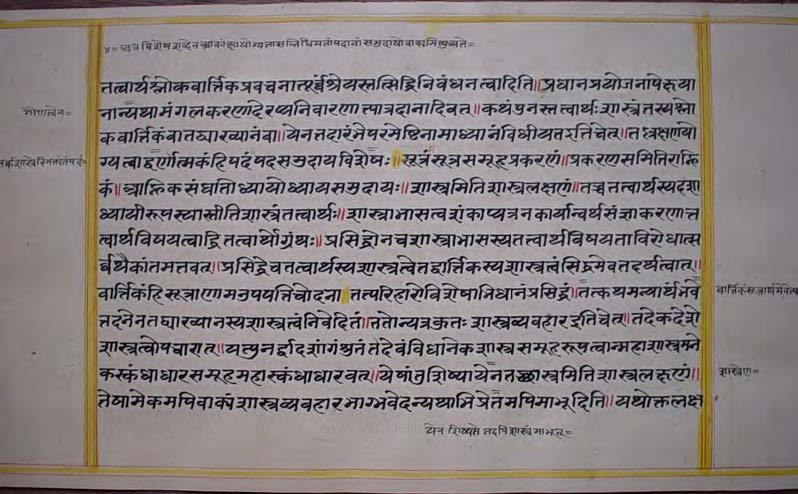 ४= अत्र विशेषशब्देनाकांक्षायोग्यतासन्निधिमतांपदानां समुदायोवाक्यमित्युच्यते=
तत्वार्थश्लोकवार्त्तिकप्रवचनात्पूर्वंश्रेयस्तत्सिद्धिनिबंधनत्वादिति॥प्रधानप्रयोजनापेक्षया
नान्यथामंगलकरणादेरप्यनिवारणात्पात्रदानादिवत्॥कथंपुनस्तत्वार्थःशास्त्रंतस्यश्लो
गौणत्वेन=
कवार्त्तिकंवातद्व्याख्यानंवा॥येनतदारंभेपरमेष्टिनामाध्यानंविधीयतइतिचेत्॥तल्लक्षणयो
ग्यत्वाद्वर्णात्मकंहिपदंपदसमुदायविशेषः॥सूत्रंसूत्रसमूहःप्रकरणं॥प्रकरणसमितिराह्नि
कं॥आह्निकसंघातोध्यायोध्यायसमुदायः॥शास्त्रमितिशास्त्रलक्षणं॥तच्चतत्वार्थस्यदशा
ध्यायीरूपस्यास्तीतिशास्त्रंतत्वार्थः॥शास्त्राभासत्वशंकाप्यत्रनकार्यान्वर्थसंज्ञाकरणात्त
त्वार्थविषयत्वाद्धितत्वार्थोग्रंथः॥प्रसिद्धोनचशास्त्राभासस्यतत्वार्थविषयताविरोधात्स
र्वथैकांतमतवत्॥प्रसिद्धेचतत्वार्थस्यशास्त्रत्वेतद्वार्त्तिकस्यशास्त्रत्वंसिद्धमेवतदर्थत्वात्॥
वार्त्तिकंहिसूत्राणामनुपपत्तिचोदनातत्परिहारोविशेषाभिधानंप्रसिद्धं॥तत्कथमन्यार्थंभवे
त्तदनेनतद्व्याख्यानस्यशास्त्रत्वंनिवेदितं॥ततोन्यत्रकुतःशास्त्रव्यवहारइतिचेत्॥तदेकदेशे
शास्त्रत्वोपचारात्॥यत्पुनर्द्वादशांगंश्रुतंतदेवंविधानेकशास्त्रसमूहरूपत्वान्महाशास्त्रमने
कस्कंधाधारसमूहमहास्कंधाधारवत्॥येषांतुशिष्यायेनतच्छास्त्रमितिशास्त्रलक्षणं॥
शास्त्रेण=
तेषामेकमपिवाक्यंशास्त्रव्यवहारभाग्भवेदन्यथाभिप्रेतमपिमाभूदिति॥यथोक्तलक्ष
येन शिष्यते तदपिशास्त्रंमाभूत्=